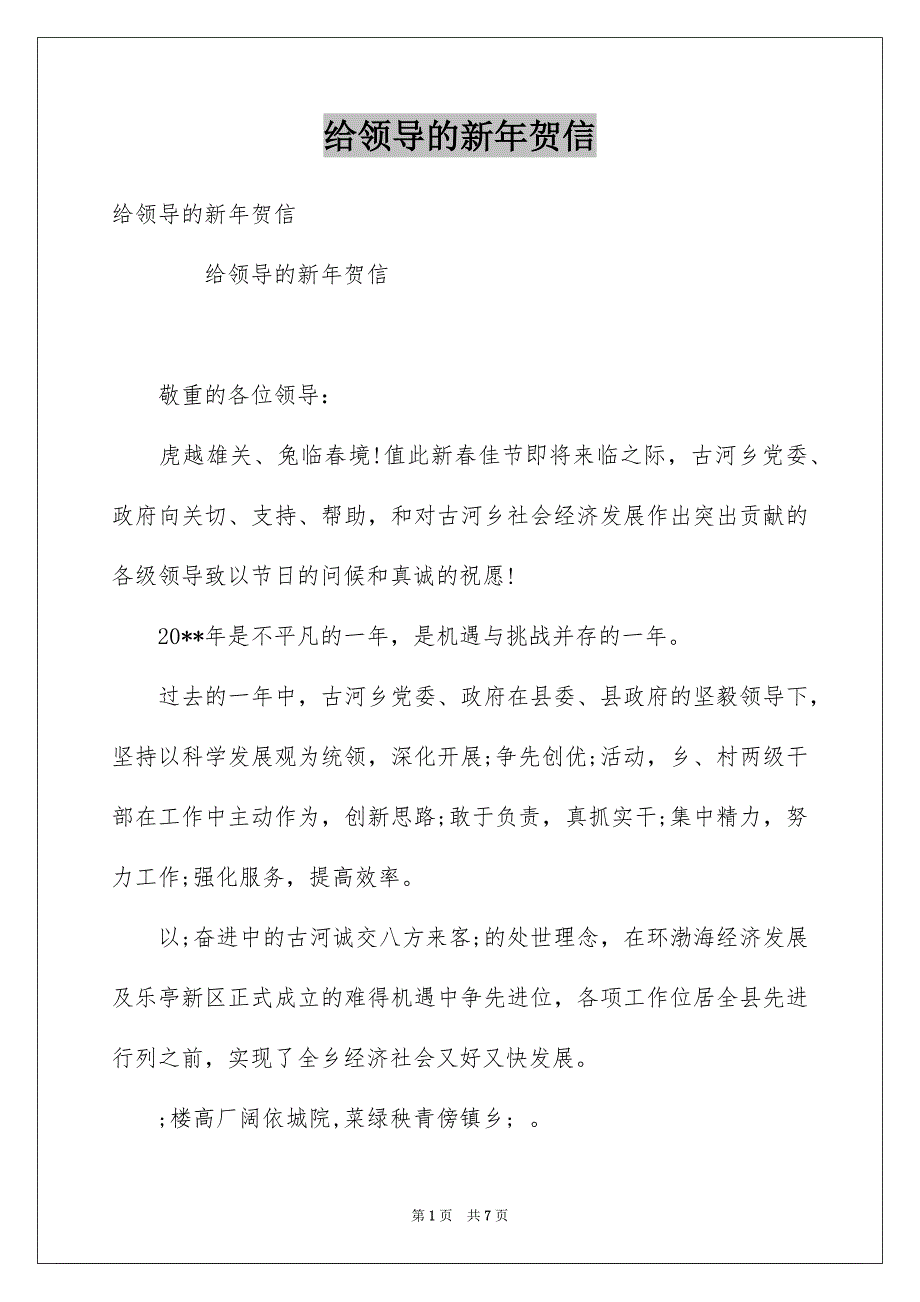 给领导的新年贺信
给领导的新年贺信
给领导的新年贺信
敬重的各位领导：
虎越雄关、兔临春境!值此新春佳节即将来临之际，古河乡党委、
政府向关切、支持、帮助，和对古河乡社会经济发展作出突出贡献的
各级领导致以节日的问候和真诚的祝愿!
20**年是不平凡的一年，是机遇与挑战并存的一年。
过去的一年中，古河乡党委、政府在县委、县政府的坚毅领导下，
坚持以科学发展观为统领，深化开展;争先创优;活动，乡、村两级干
部在工作中主动作为，创新思路;敢于负责，真抓实干;集中精力，努
力工作;强化服务，提高效率。
以;奋进中的古河诚交八方来客;的处世理念，在环渤海经济发展
及乐亭新区正式成立的难得机遇中争先进位，各项工作位居全县先进
行列之前，实现了全乡经济社会又好又快发展。
;楼高厂阔依城院,菜绿秧青傍镇乡; 。
第 1 页 共 7 页